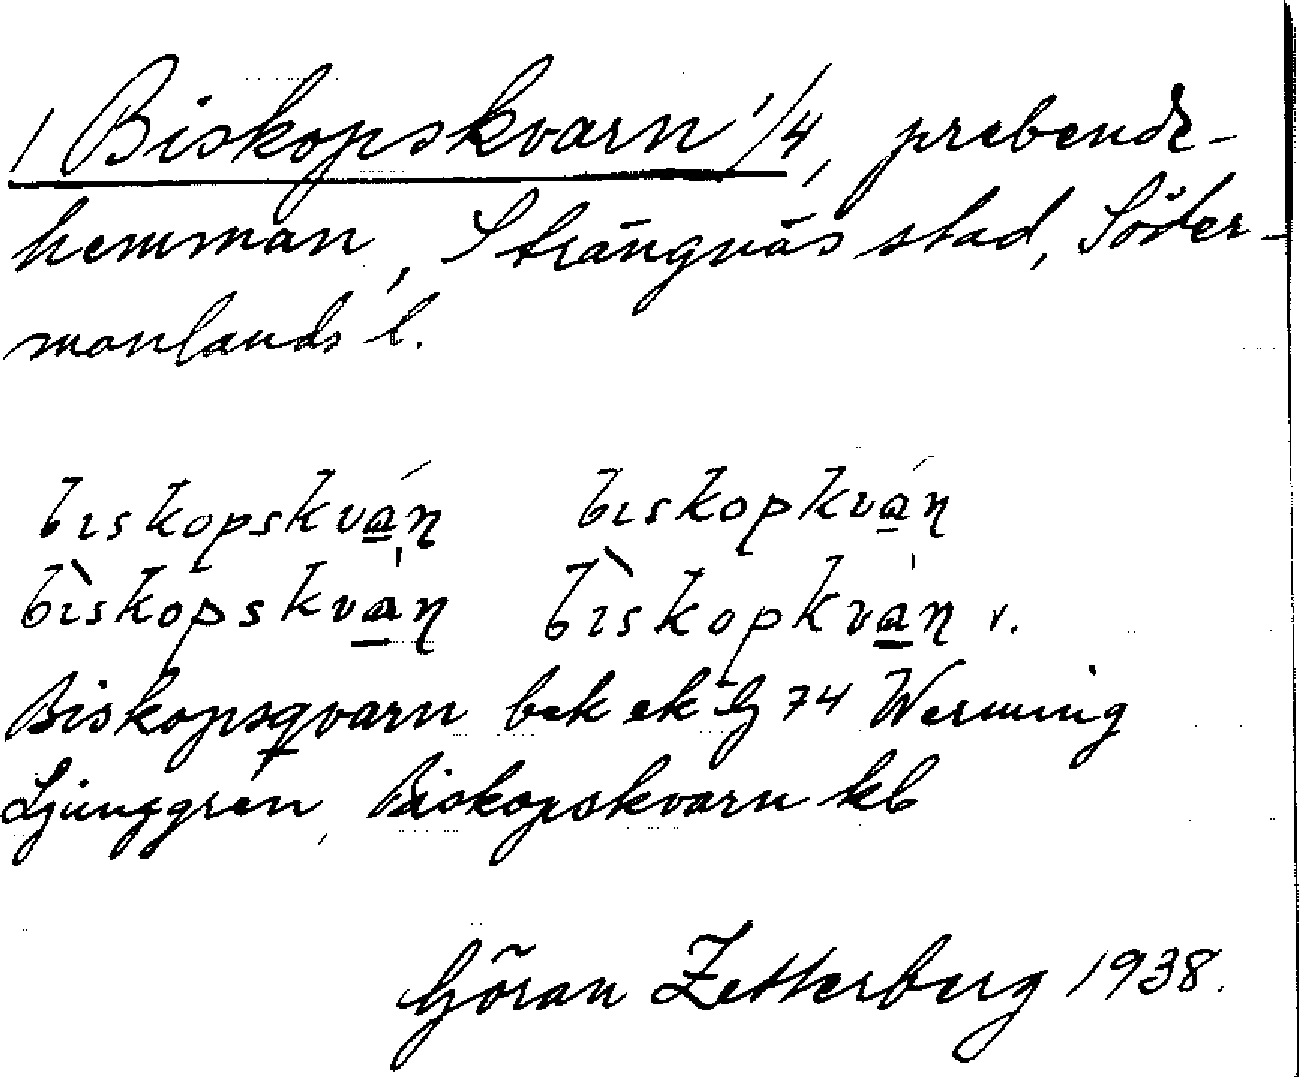 1 Biskopskvarn 1/4, prebende-
hemman, Strängnäs stad, Söder-
manlands l.
biskopskván biskopkván
bìskopskvàn bìskopkvàn v.
Biskopsqvarn bek ek 74 Werming
Ljunggren, Biskopskvarn kb
Göran Zetterberg 1938.